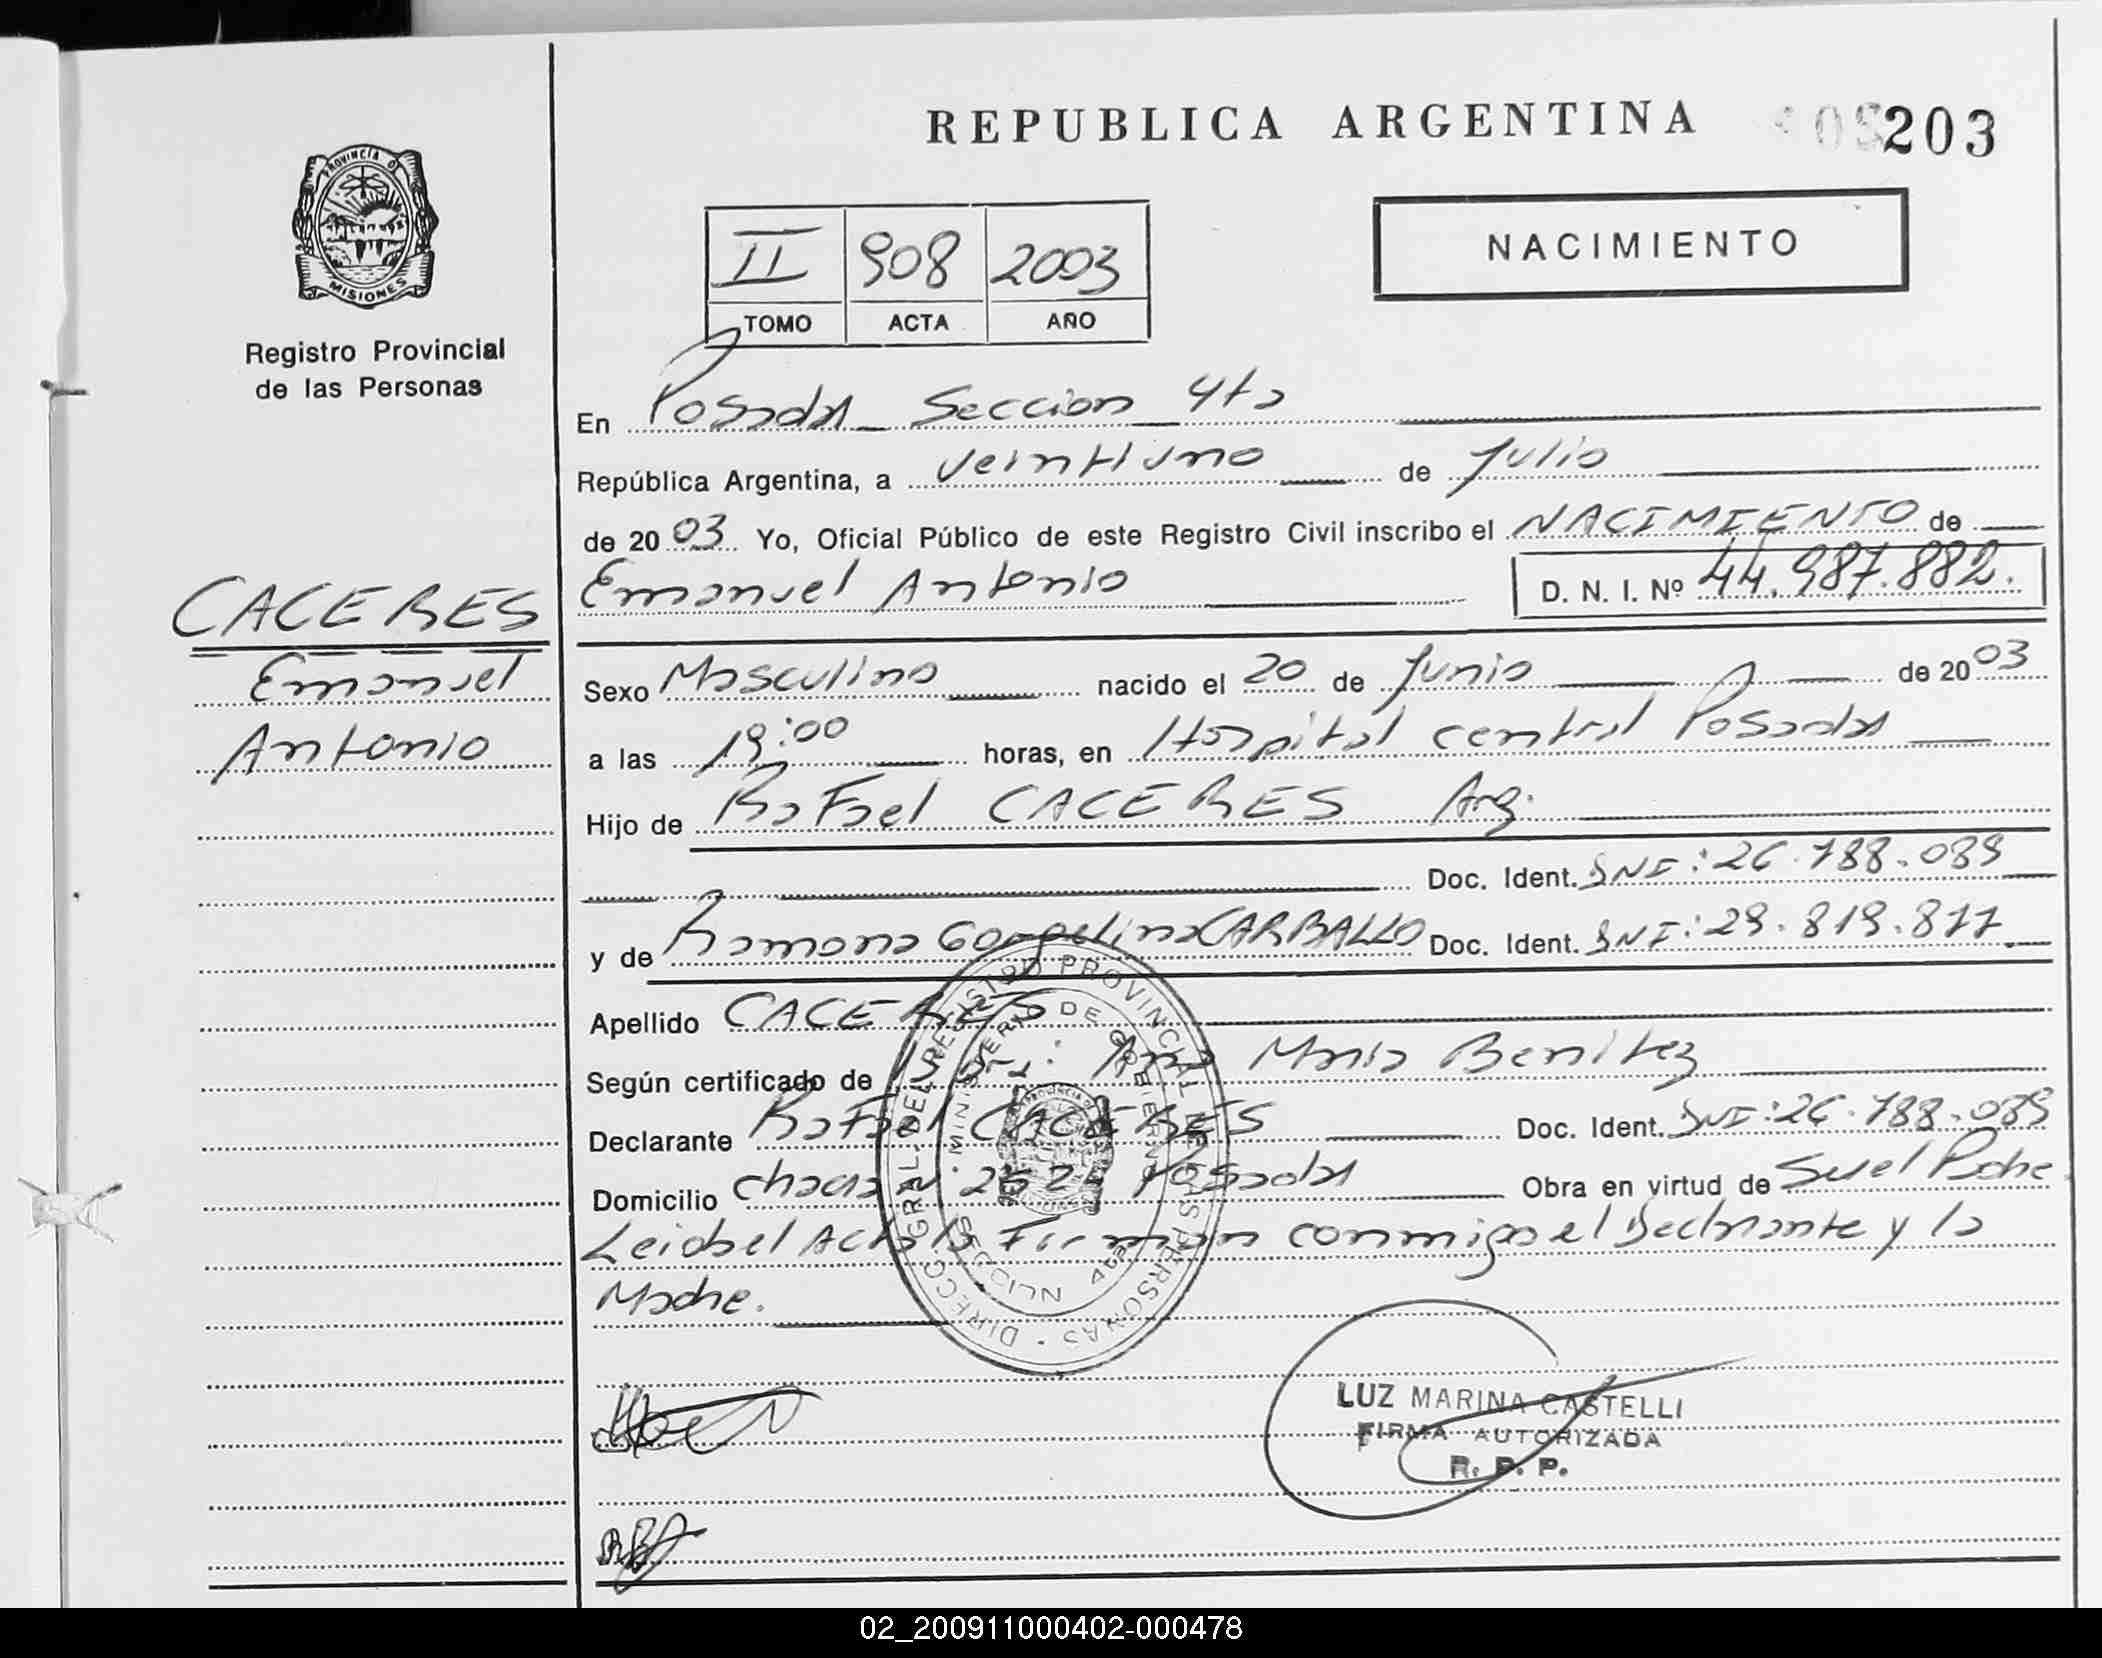 REPUBLICA ARGENTINA 203
PROVINCIA DE
MISIONES
Registro Provincial
de las Personas
NACIMIENTO
II 908 2003
TOMO ACTA AÑO
En Posadas Seccion 4ta
República Argentina, a veintiuno de Julio
de 2003 Yo, Oficial Público de este Registro Civil inscribo el NACIMIENTO de
Emanuel Antonio D. N. I. Nº 44.987.882.
CACERES
Emanuel
Antonio
Sexo Masculino nacido el 20 de Junio de 2003
a las 19:00 horas, en Hospital central Posadas
Hijo de Rafael CACERES Arg.
Doc. Ident. DNI: 26.788.089
y de Ramona CARBALLO Doc. Ident. DNI: 29.819.877
Apellido CACERES
Según certificado de Dra: Ana Maria Benitez
Declarante Rafael CACERES Doc. Ident. DNI: 26.788.089
Domicilio Posadas Obra en virtud de Ser el Padre
Leida el Acta la Firman conmigo el Declarante y la
Madre.
DIRECC. GRAL. DEL REGISTRO PROVINCIAL DE LAS PERSONAS
MINISTERIO DE GOBIERNO
SECCION 4ta
LUZ MARINA CASTELLI
FIRMA AUTORIZADA
R. P. P.
02_200911000402-000478